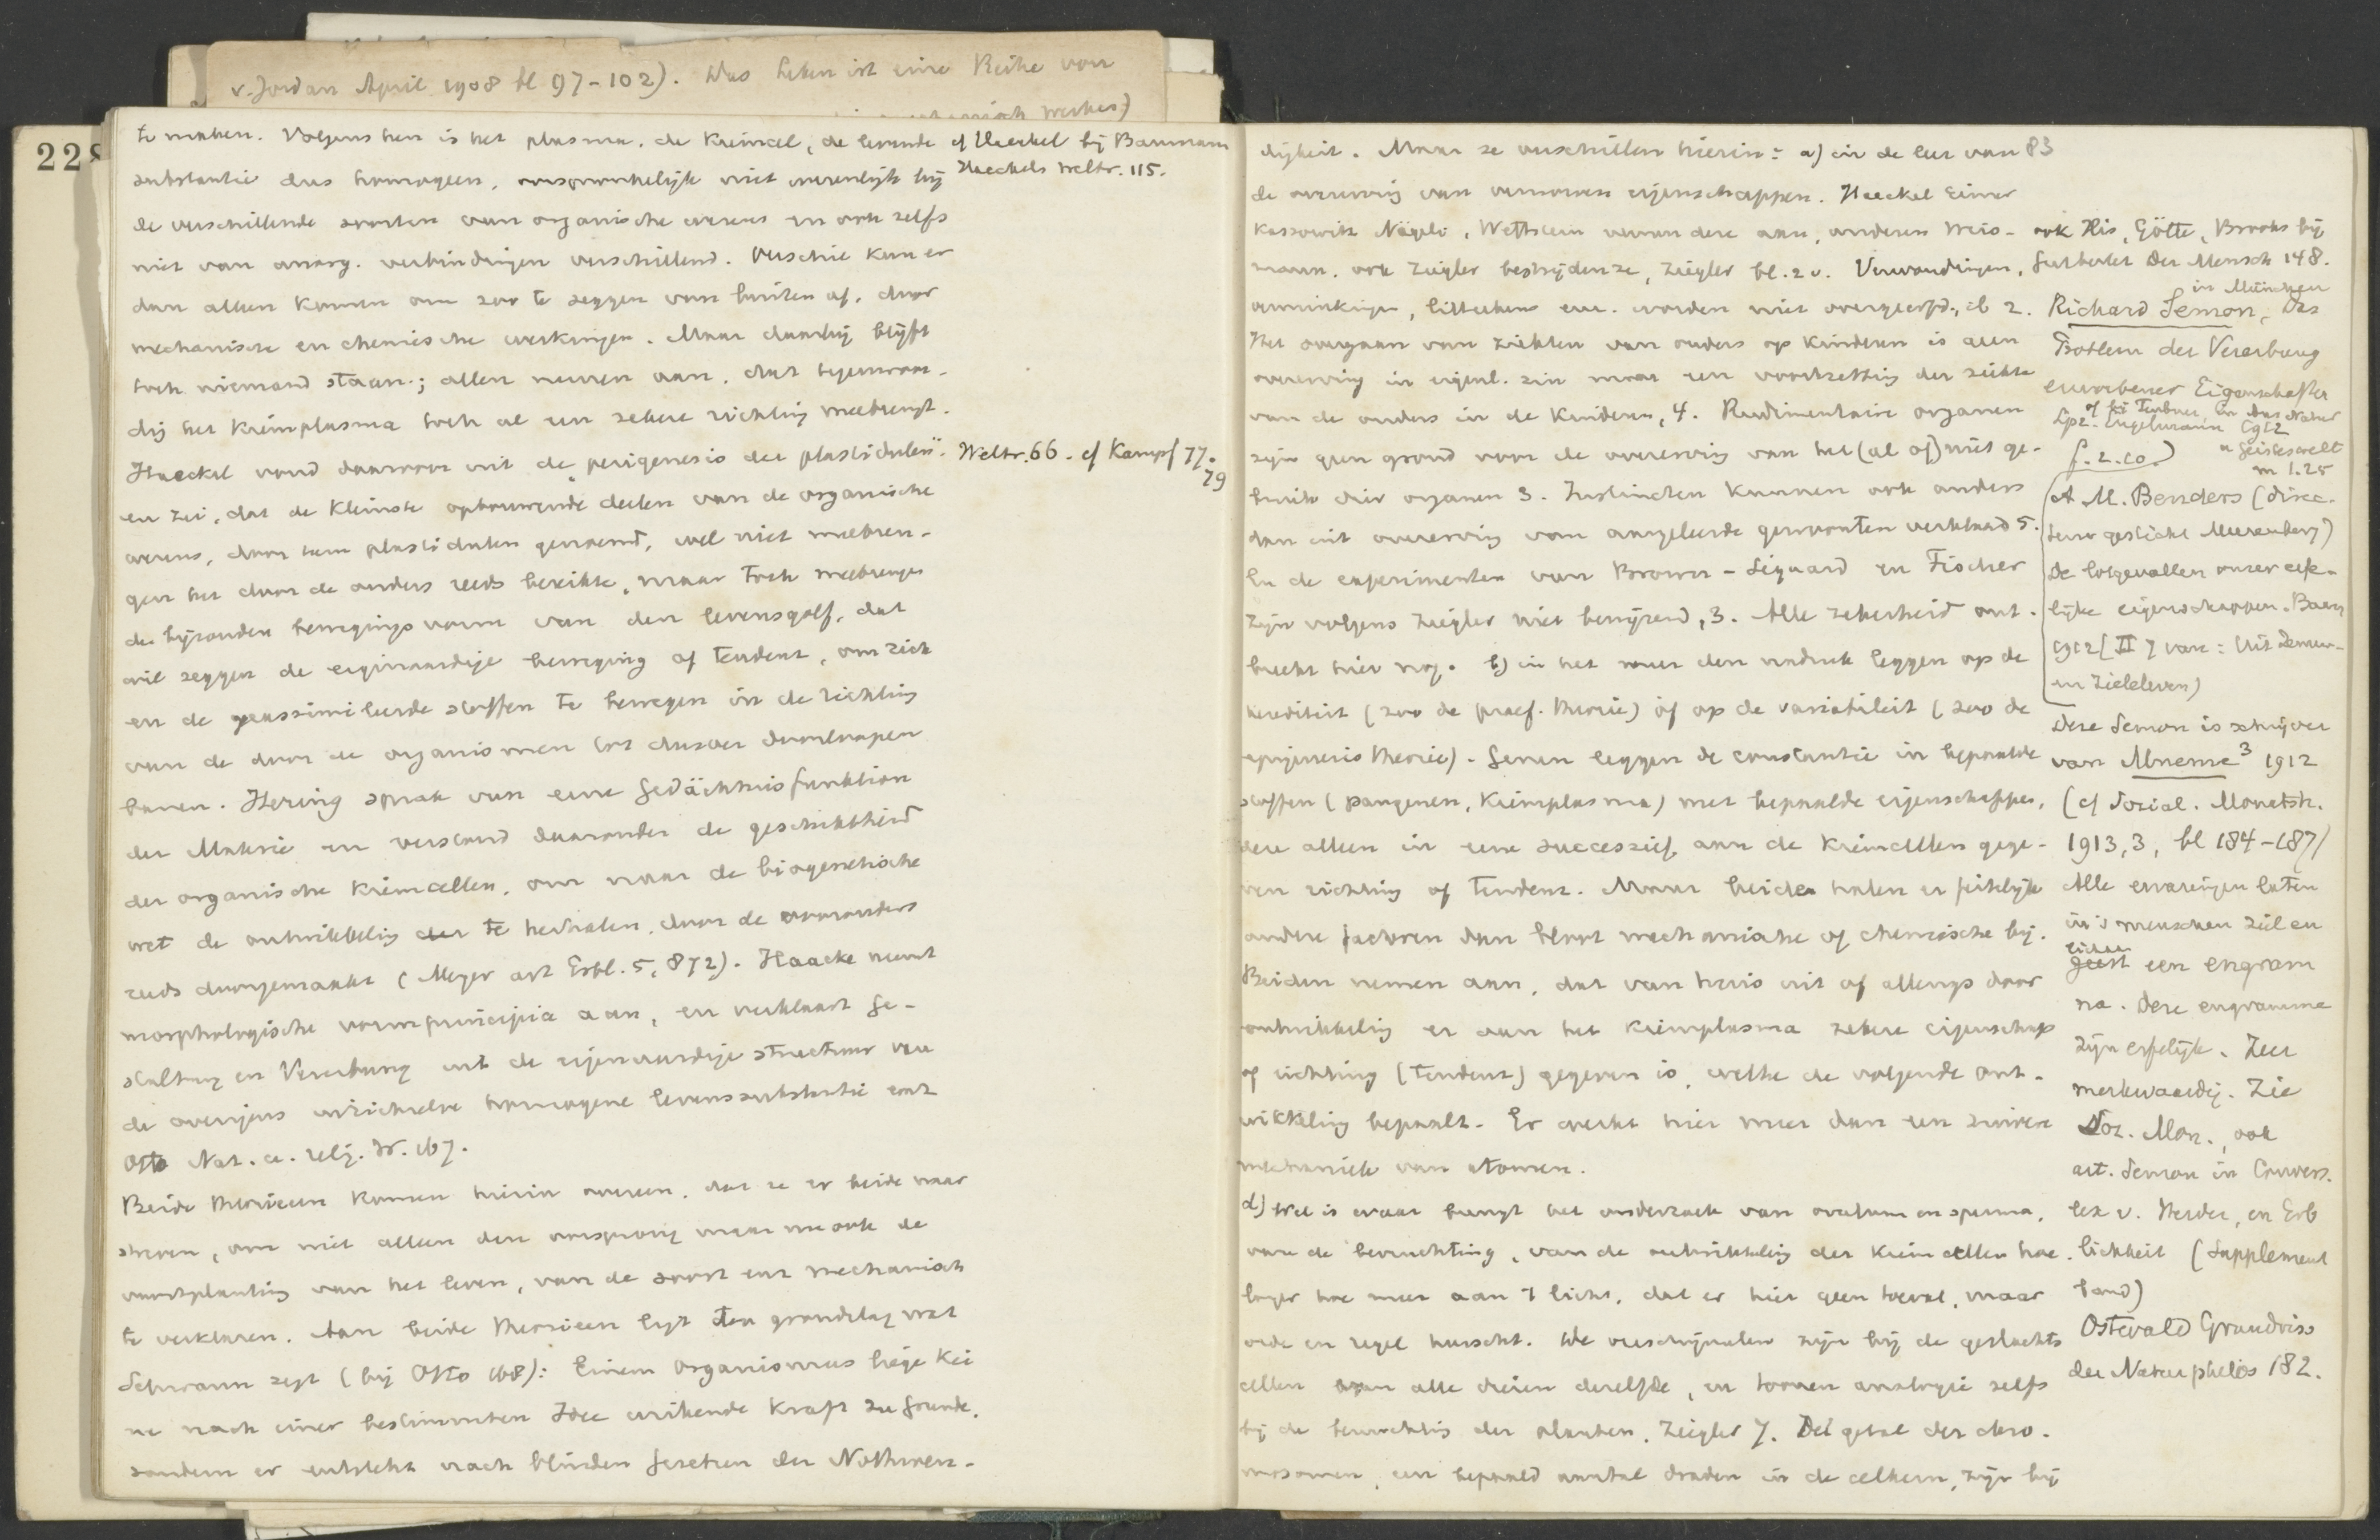 v. Jordan April 1908 bl 97-102). Das Leben ist eine Reihe von
228
te maken. Volgens hen is het plasma, de kiemcel, de levende
substantie dus homogeen, oorspronkelijk niet wezenlijk bij
de verschillende soorten van organische wezens en ook zelfs
niet van anorg. verbindingen verschillend. Verschil kan er
dan alleen komen om zoo te zeggen van buiten af, door
mechanische en chemische werkingen. Maar daarbij blijft
toch niemand staan; allen nemen aan, dat tegenwoor-
dig het kiemplasma toch al een zekere richting meebrengt.
Haeckel vond daarvoor uit de "perigenesis der plastidulen"
en zei, dat de kleinste opbouwende deelen van de organische
wezens, door hem plastidulen genoemd, wel niet meebren-
gen het door de ouders reeds bereikte, maar toch meebrengen
de bijzondere bewegingsvorm van den levensgolf, dat
wil zeggen de eigenaardige beweging of tendenz, om zich
en de geassimileerde stoffen te bewegen in de richting
van de door de organismen tot dusver doorloopen
banen. Hering sprak van eine Gedächtnisfunktion
der Materie en verstond daaronder de geschiktheid
der organische kiemcellen, om naar de biogenetische
wet de ontwikkeling der te herhalen, door de voorouders
reeds doorgemaakt (Meyer art Erbl. 5, 872). Haacke neemt
morphologische vormprincipia aan, en verklaart Ge-
staltung en Vererbung uit de eigenaardige structuur van
de overigens homogene levenssubstantie
Otto Nat. u. relig. W. 167.
Beide theorieen komen hierin overeen, dat ze er beide naar
streven, om niet alleen den oorsprong maar nu ook de
voortplanting van het leven, van de soort enz mechanisch
te verklaren. Aan beide theorieen ligt ten grondslag wat
Schwann zegt (bij Otto 168): Einem Organismus liege kei
ne nach einer bestimmten Idee wirkende Kraft zu Grunde,
sondern er entsteht nach blinden Gesetzen der Nothwen-
cf Haeckel bij Baumann
Haeckels Weltr. 115.
Weltr. 66. cf Kampf 77.
79
digkeit. Maar ze verschillen hierin: a) in de leer van 83
de overerving van verworven eigenschappen. Haeckel Eimer
Kassowitz Nägeli, Wettstein aan, anderen Weis-
mann, ook Ziegler bestrijden ze, Ziegler bl. 2 v. Verwondingen,
verminkingen, litteekens enz. worden niet overgeerfd, ib 2.
Het overgaan van ziekten van ouders op kinderen is geen
overerving in eigenl. zin maar een voortzetting der ziekte
van de ouders in de kinderen, 4. Rudimentaire organen
zijn geen grond voor de overerving van het (al of) niet ge-
bruik dier organen 3. Instincten kunnen ook anders
dan uit overerving van aangeleerde gewoonten verklaard 5.
En de experimenten van Brown-Sequard en Fischer
zijn volgens Ziegler niet bewijzend, 3. Alle zekerheid ont-
breekt hier nog. b) in het meer den nadruk leggen op de
herediteit (zoo de praef. theorie) of op de variabiliteit (zoo de
epigenesis theorie). Genen leggen de constantie in bepaalde
stoffen (pangenen, kiemplasma) met bepaalde eigenschappen,
deze alleen in eene successief aan de kiemcellen gege-
ven richting of tendenz. Maar beiden halen er feitelijk
andere factoren dan bloot mechanische of chemische bij.
Beiden nemen aan, dat van huis uit of allengs door
ontwikkeling er aan het kiemplasma zekere eigenschap
of richting (tendenz) gegeven is, welke de volgende ont-
wikkeling bepaalt. Er werkt hier meer dan een zuivere
mechaniek van atomen.
d) Wel is waar brengt het onderzoek van ovulum en sperma,
van de bevruchting, van de ontwikkeling der kiemcellen hoe
langer hoe meer aan 't licht, dat er hier geen toeval, maar
orde en regel heerscht. De verschijnselen zijn bij de geslachts
cellen van alle dieren dezelfde, en toonen analogie zelfs
bij de bevruchting der planten. Ziegler 7. Het getal der chro-
mosomen, een bepaald aantal draden in de celkern, zijn bij
ook His, Götte, Brooks bij
Gutberlet Der Mensch 148.
in München
Richard Semon, Das
Problem der Vererbung
erworbener Eigenschaften
Lpz. Engelmann 1912
of bij Teubner, in Aus Natur
u Geisteswelt
m 1.25
f. 2.10.)
(A. M. Benders (direc-
teur gesticht Meerenberg)
De lotgevallen onzer erfe-
lijke eigenschappen. Baarn
1912 [II 7 van: Uit Zenuw-
en Zieleleven)
Deze Semon is schrijver
van Mneme³ 1912
(cf Sozial. Monatsh.
1913, 3, bl 184-187)
Alle ervaringen laten
in 's menschen ziel en
geest een engram
na. Deze engramme
zijn erfelijk. Zeer
merkwaardig. Zie
Soz. Mon., ook
art. Semon in Convers.
lex v. Herder, en Erb
lichkeit (Supplement
band)
Ostwald Grundriss
der Naturphilos 182.